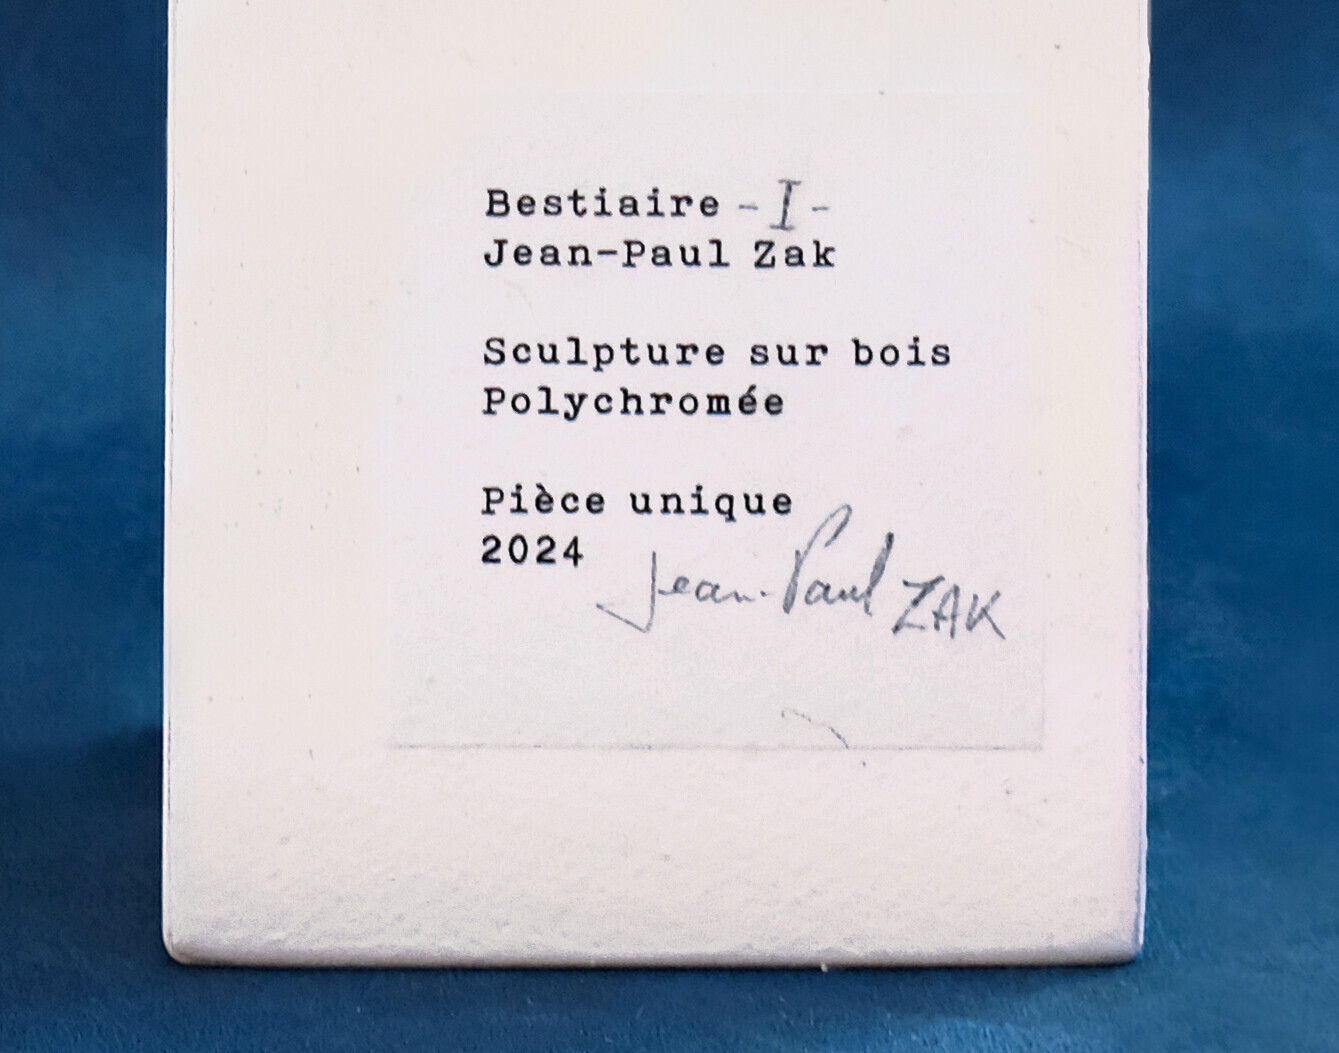 Bestiaire - I -
Jean-Paul Zak
Sculpture sur bois
Polychromée
Pièce unique
2024
Jean-Paul ZAK